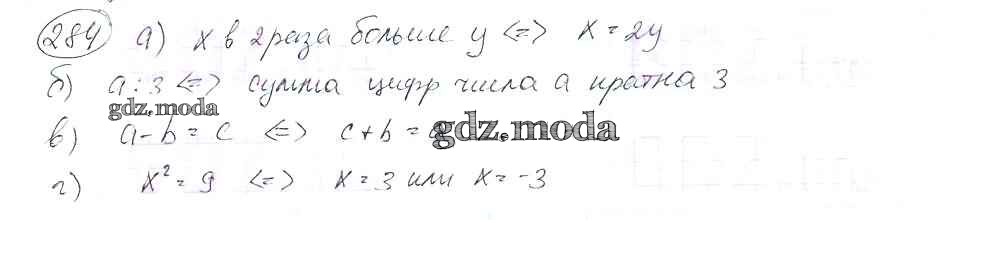 284 а) x в 2 раза больше y <=> x = 2y
б) a : 3 <=> сумма цифр числа a кратна 3
gdz.moda
в) a - b = c <=> c + b = gdz.moda
г) x² = 9 <=> x = 3 или x = -3